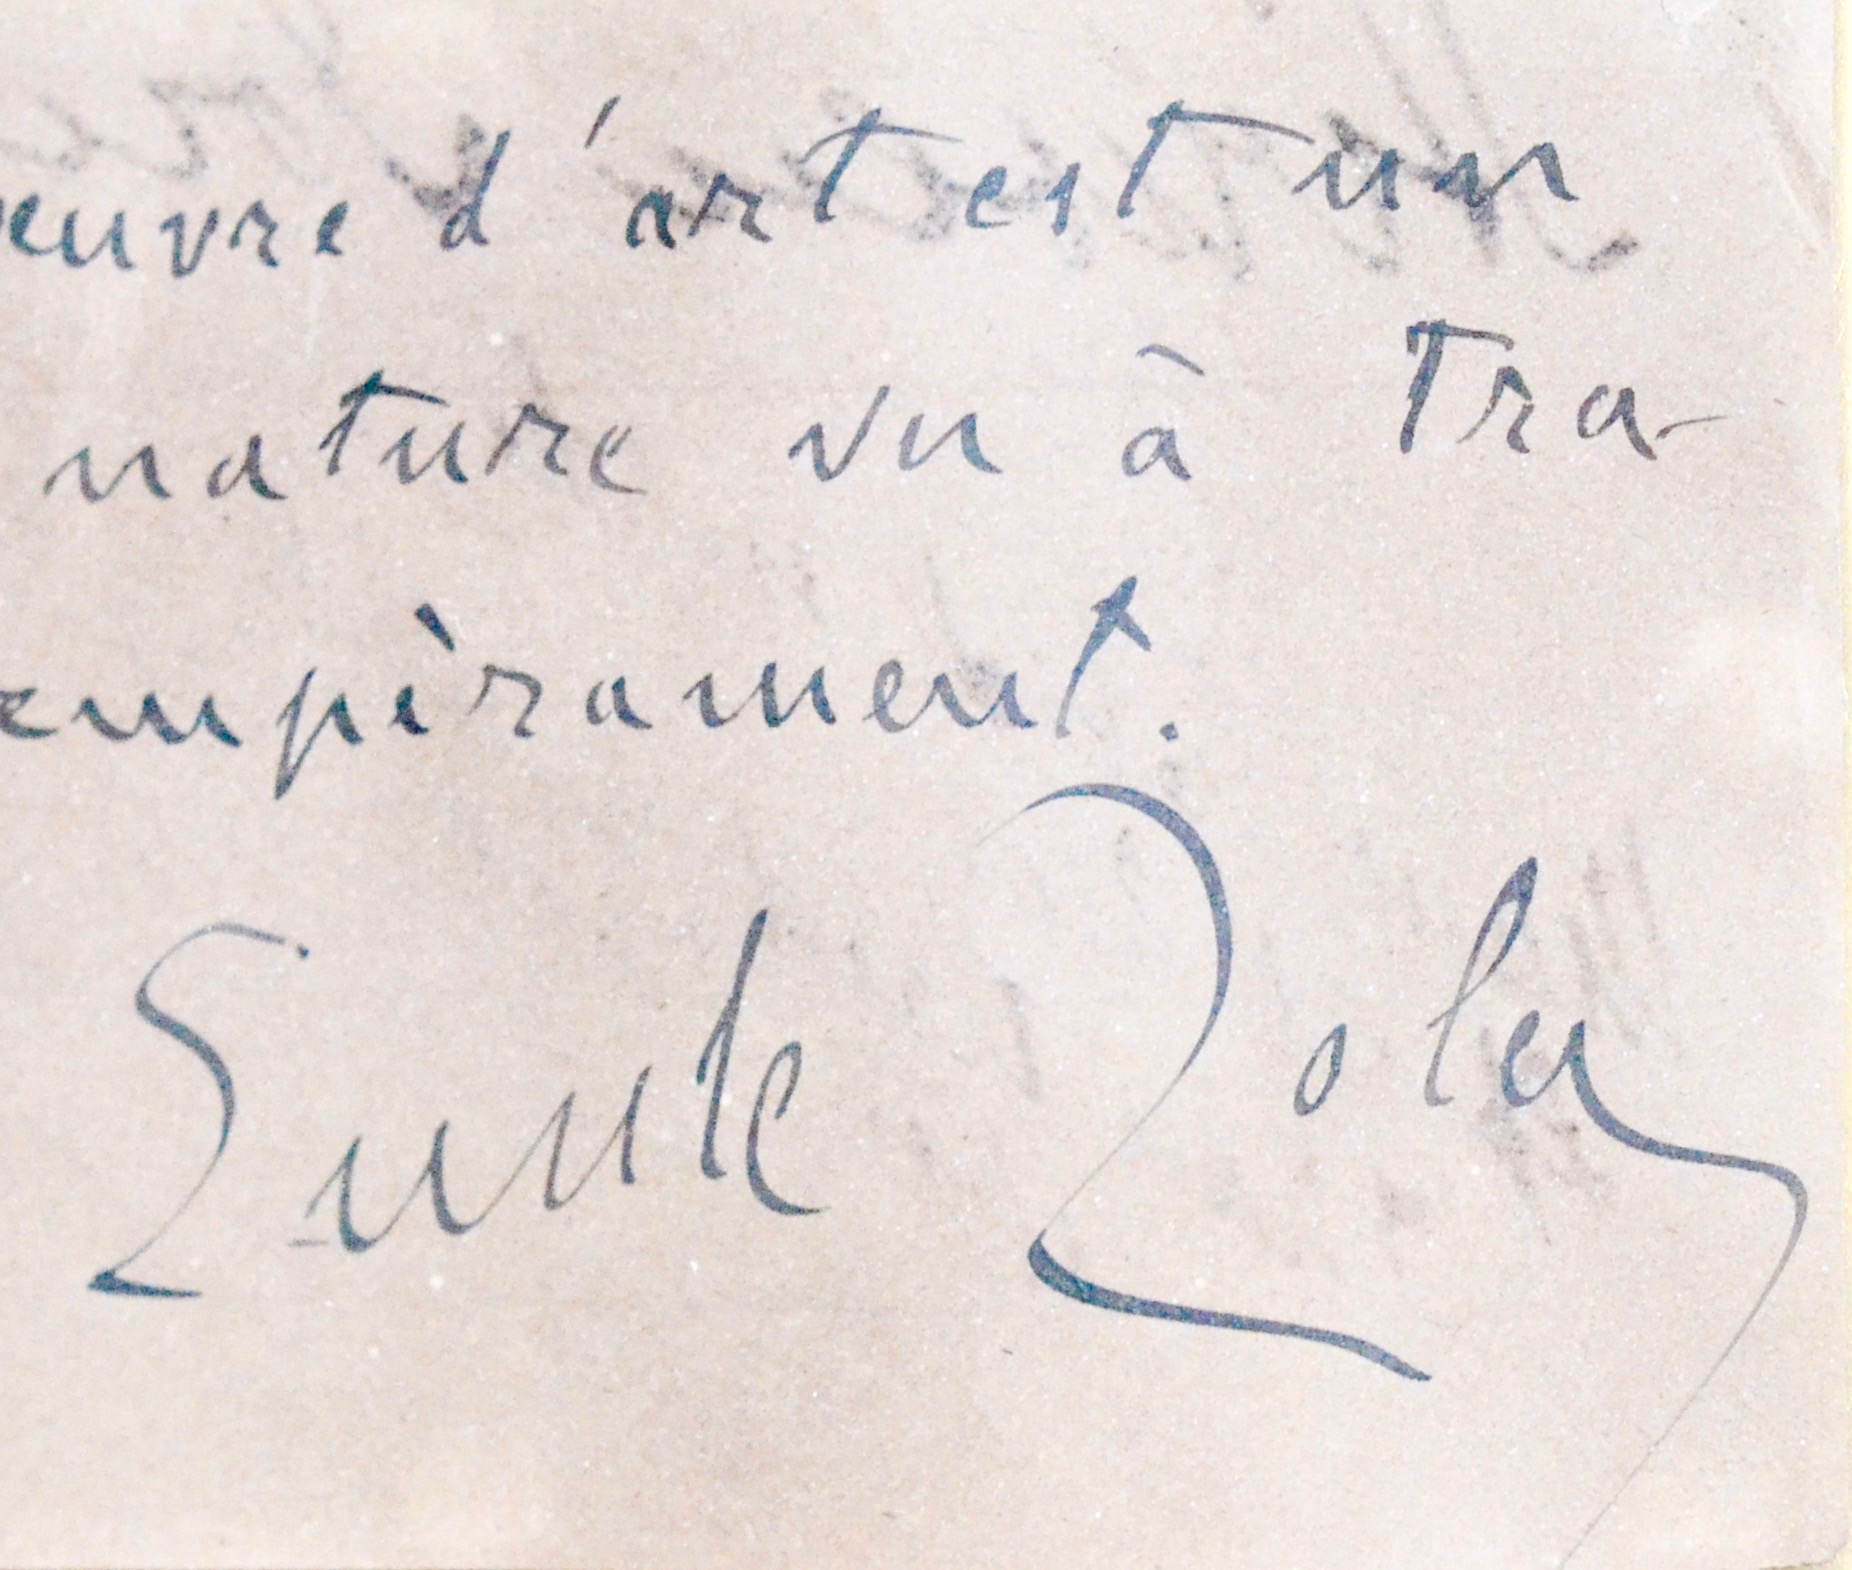 œuvre d'art est un
nature vu à tra-
empèrament.
Emile Zola